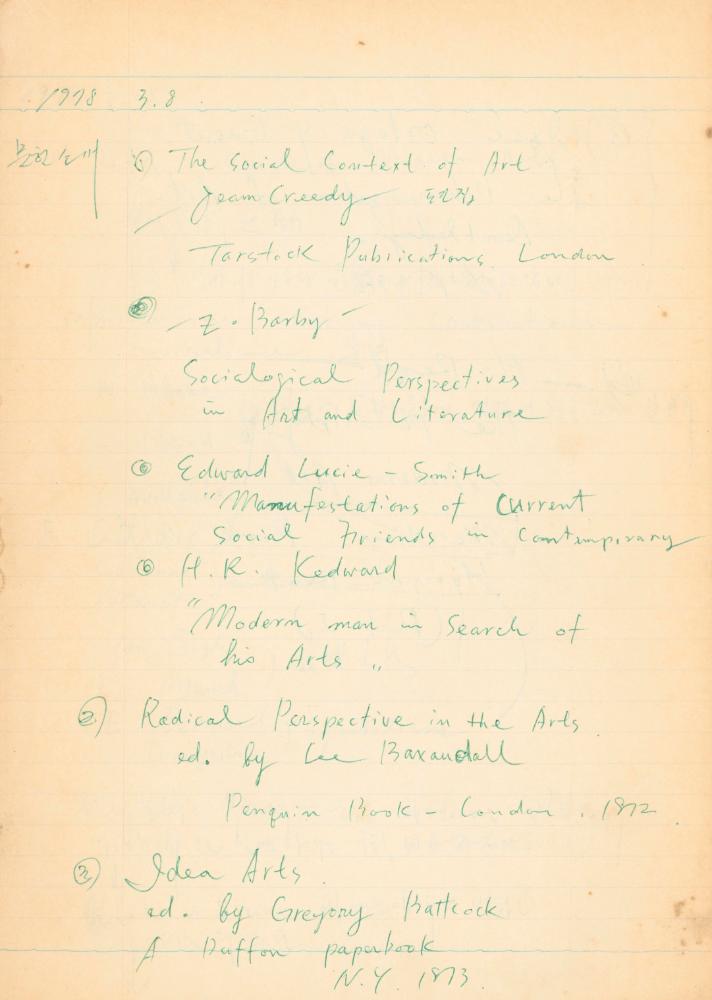 1978 3.8
① The Social Context of Art
Jean Creedy
Tarstock Publications. London
Z. Barby
Sociological Perspectives
in Art and Literature
◎ Edward Lucie - Smith
"Manufestations of Current
Social Friends in Contemporary
◎ H. R. Kedward
"Modern man in Search of
his Arts "
② Radical Perspective in the Arts.
ed. by Lee Baxandall
Penguin Book - London. 1972.
③ Idea Arts.
ed. by Gregory Battcock
A Duffon paperbook
N.Y. 1973.